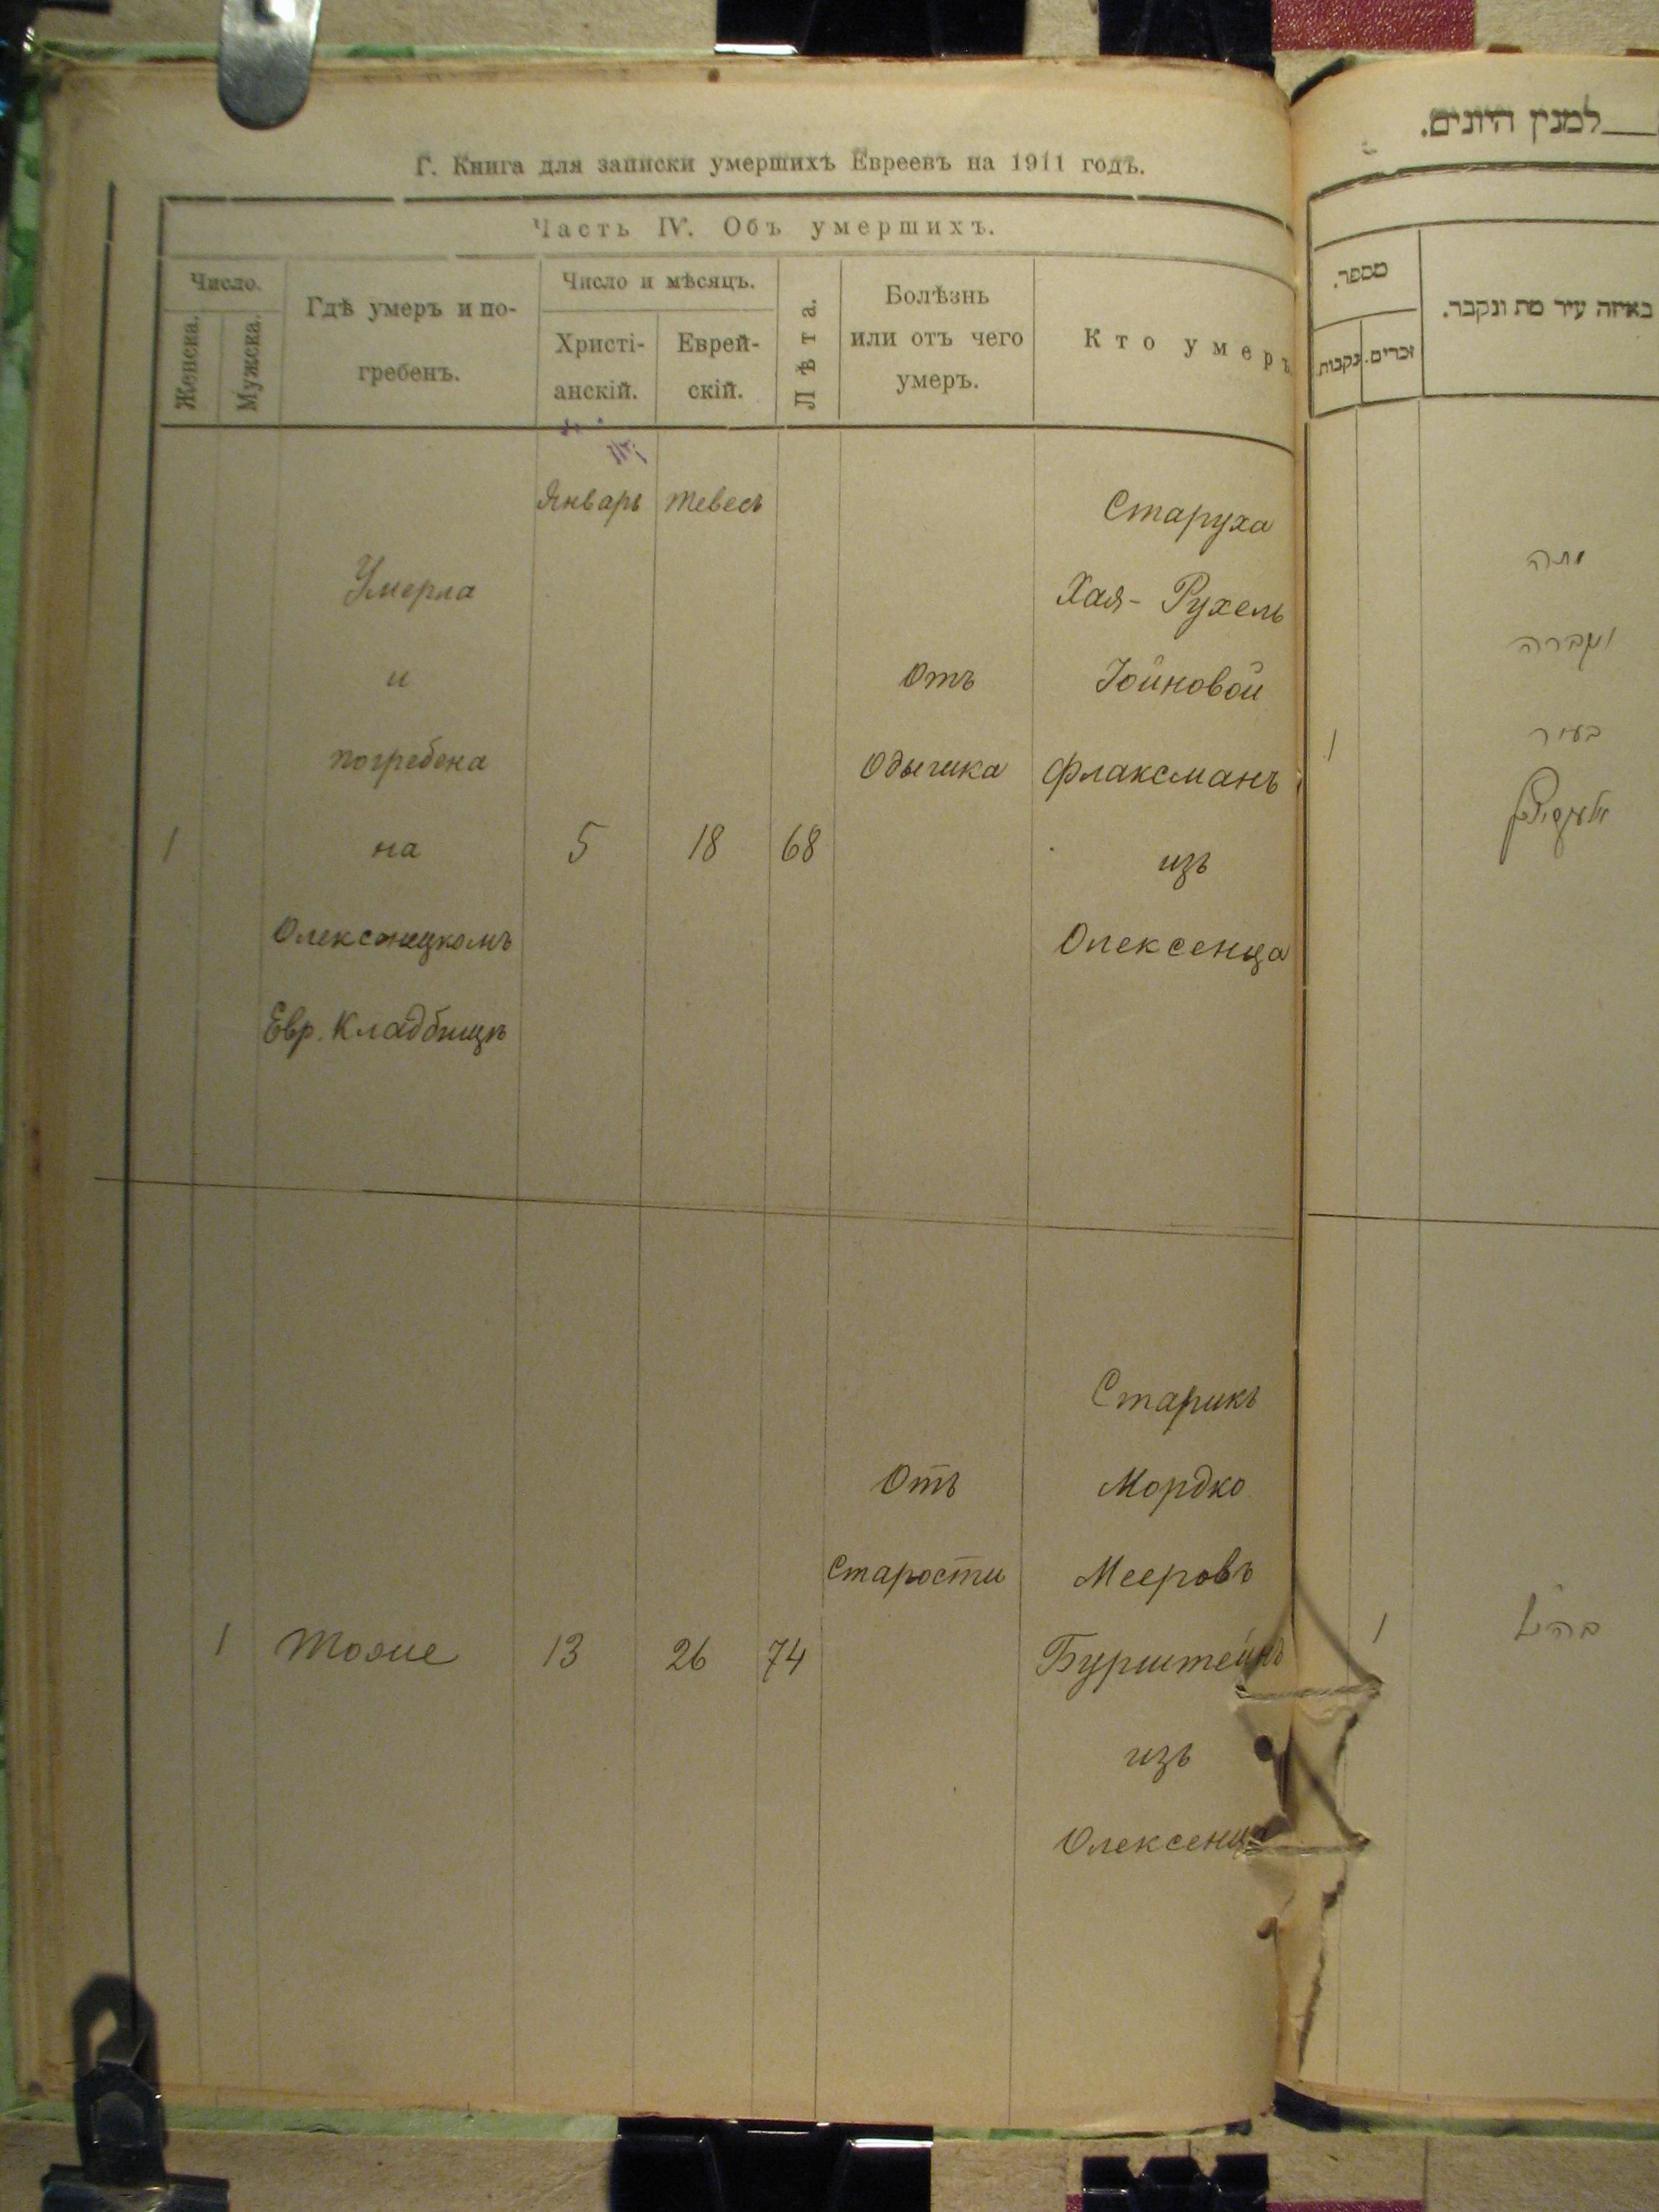 Г. Книга для записки умершихъ Евреевъ на 1911 годъ.
Часть IV. Объ умершихъ.
Число.
Женска.
Мужска.
Гдѣ умеръ и по-
гребенъ.
Число и мѣсяцъ.
Христі-
анскій.
Еврей-
скій.
Лѣта.
Болѣзнь
или отъ чего
умеръ.
Кто умеръ
Январь Тевесъ
Старуха
Умерла
Хая- Рухель
и
Отъ
Іойновой
погребена
Одышка
Флаксманъ
1
на
5 18 68
изъ
Олексенецкомъ
Олексенца
Евр. Кладбищѣ
Старикъ
Отъ
Мордко
Старости
Мееровъ
1 Тоже 13 26 74
Бурштейнъ
изъ
Олексенца
למנין היונים.
מספר.
נקבות
זכרים.
באיזה עיר מת ונקבר.
מתה
ונקברה
1
בעיר
1